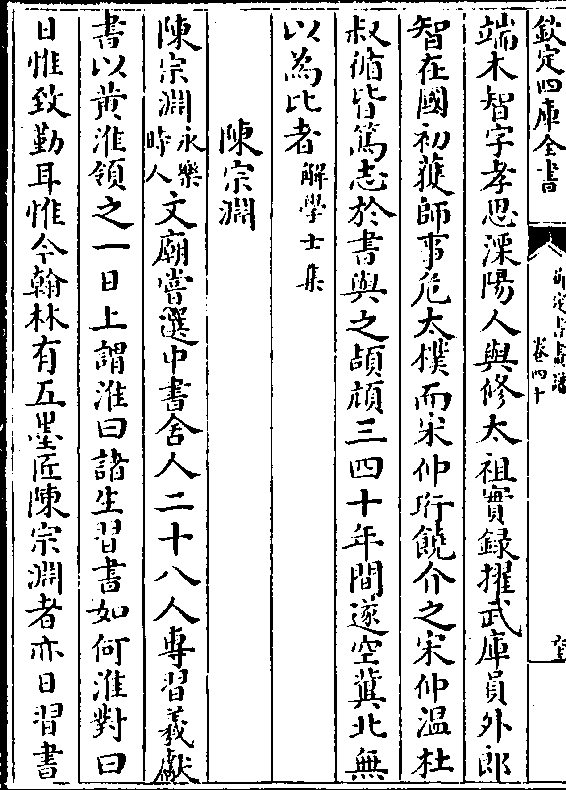 欽定四庫全書
御定書畫譜
卷四十
端木智字孝思溧陽人與修太祖實録擢武庫員外郎
智在國初獲師事危太樸而宋仲珩饒介之宋仲溫杜
叔循皆篤志於書與之頡頏三四十年間遂空冀北無
以為比者解學士集
陳宗淵
陳宗淵永樂時人文廟嘗選中書舍人二十八人專習羲獻
書以黄淮領之一日上謂淮曰諸生習書如何淮對曰
日惟致勤耳惟今翰林有五墨匠陳宗淵者亦日習書